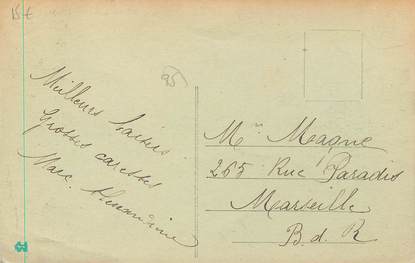 15€
95
Meilleurs baisers
Grosses caresses
Marc.
Mme Magne
265 Rue Paradis
Marseille
B. d. R